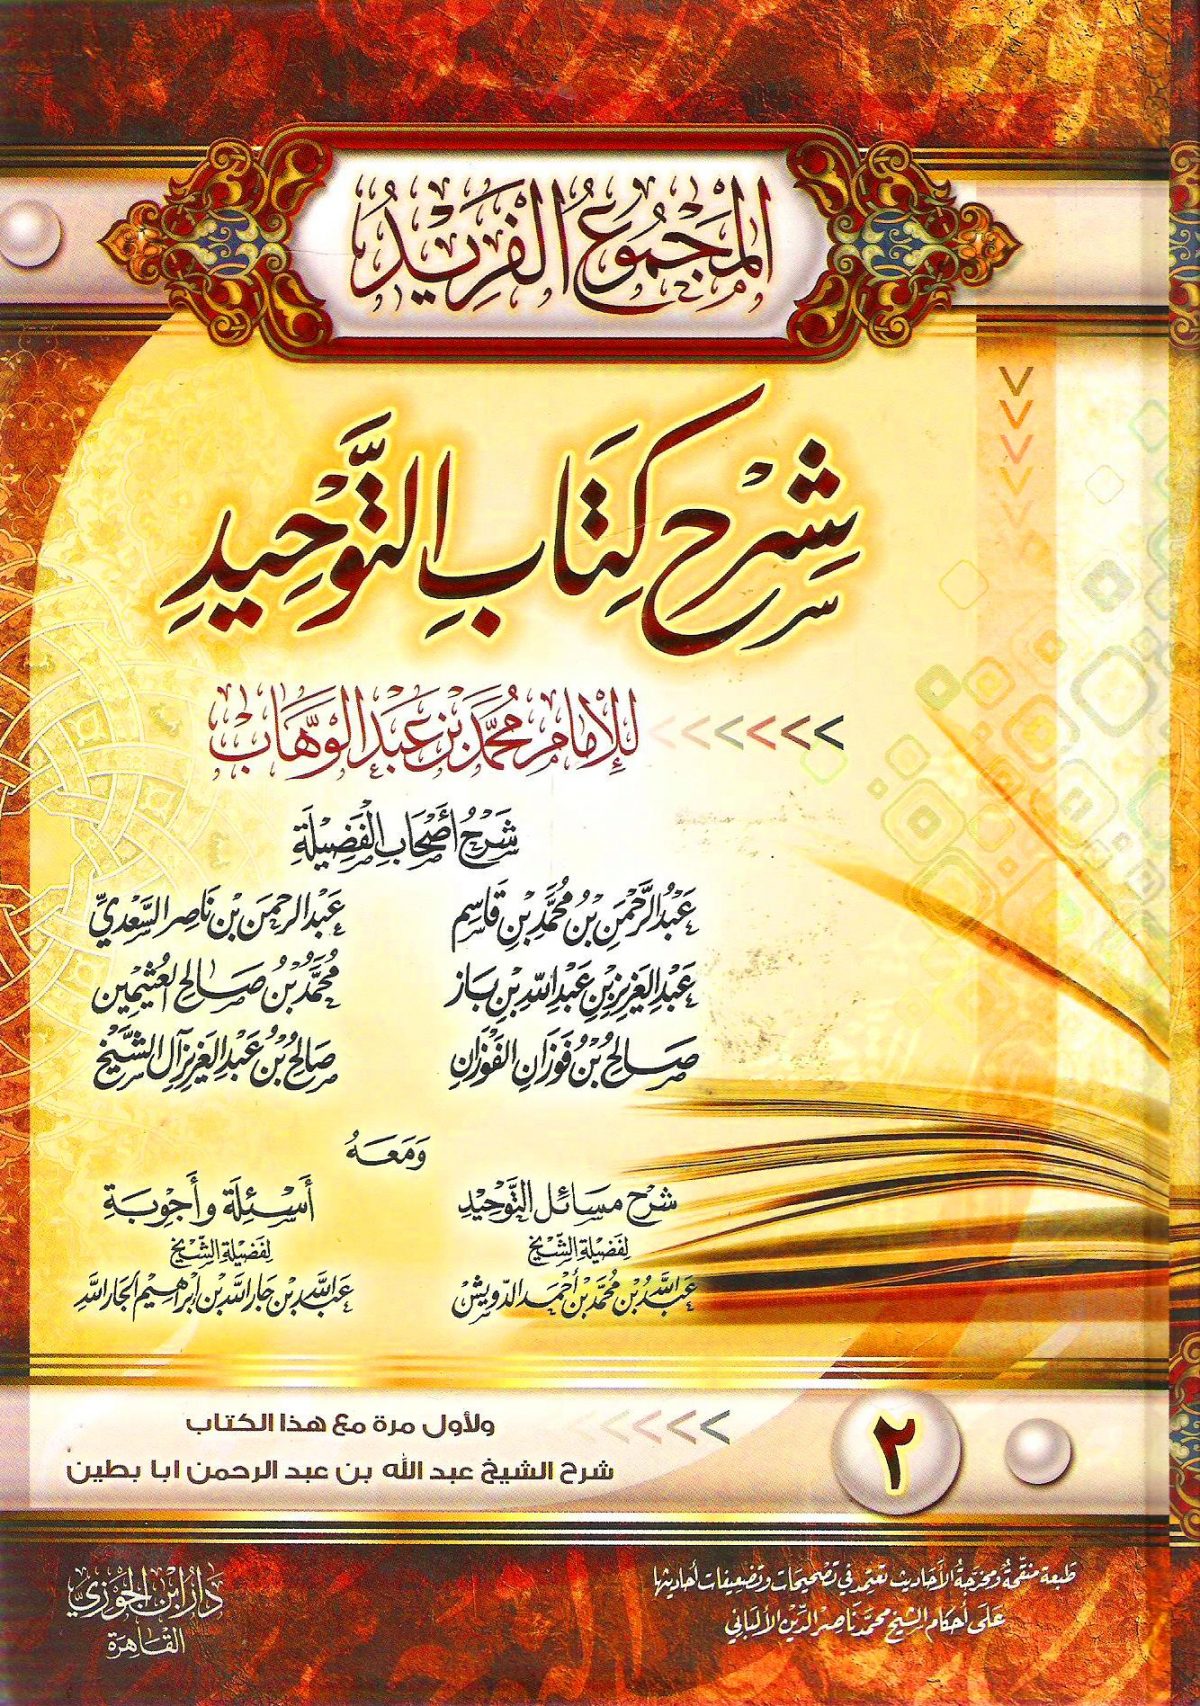 المَجْمُوعُ الفَرِيْدُ
شَرْح كِتَابِ التَّوْحِيدِ
للإِمَام مُحَمَّد بْن عَبْد الوَهَّاب
شَرْحُ أَصْحَابِ الفَضِيْلَةِ
عَبْدُ الرَّحْمَنِ بْنُ مُحَمَّدِ بْنِ قَاسِم عَبْد الرحمَن بْن نَاصِر السَّعْدِيِّ
عَبْدِ العَزِيزِ بْنِ عَبْدِ اللهِ بْنِ بَاز مُحَمَّدُ بْنُ صَالِح العُثَيْمِين
صَالِحُ بْنُ فَوْزَانِ الفَوْزَانِ صَالِحُ بْنُ عَبْدِ العَزِيزِ آل الشَّيْخِ
وَمَعَهُ
شَرْح مَسَائِل التَّوْحِيْدِ أَسْئِلَة وَأَجْوِبَة
لِفَضِيْلَةِ الشَّيْخِ لِفَضِيْلَةِ الشَّيْخِ
عَبْدُ اللهِ بْنُ مُحَمَّد بْن أَحْمَد الدّوِيْشْ عَبْد اللَّه بْن جَار اللَّه بْن إِبْرَاهِيْم الجَار اللَّه
ولأول مرة مع هذا الكتاب
شرح الشيخ عبد الله بن عبد الرحمن ابا بطين
٢
طبعة منقَّحةٌ ومخرّجةُ الأحَاديث تعتمد في تصْحِيحَات وتضعِيفات أحاديثها
عَلى أحكام الشيخ محمّد نَاصِر الدِّين الألبَاني
دَارُ ابْن الجَوْزِي
القَاهِرَة